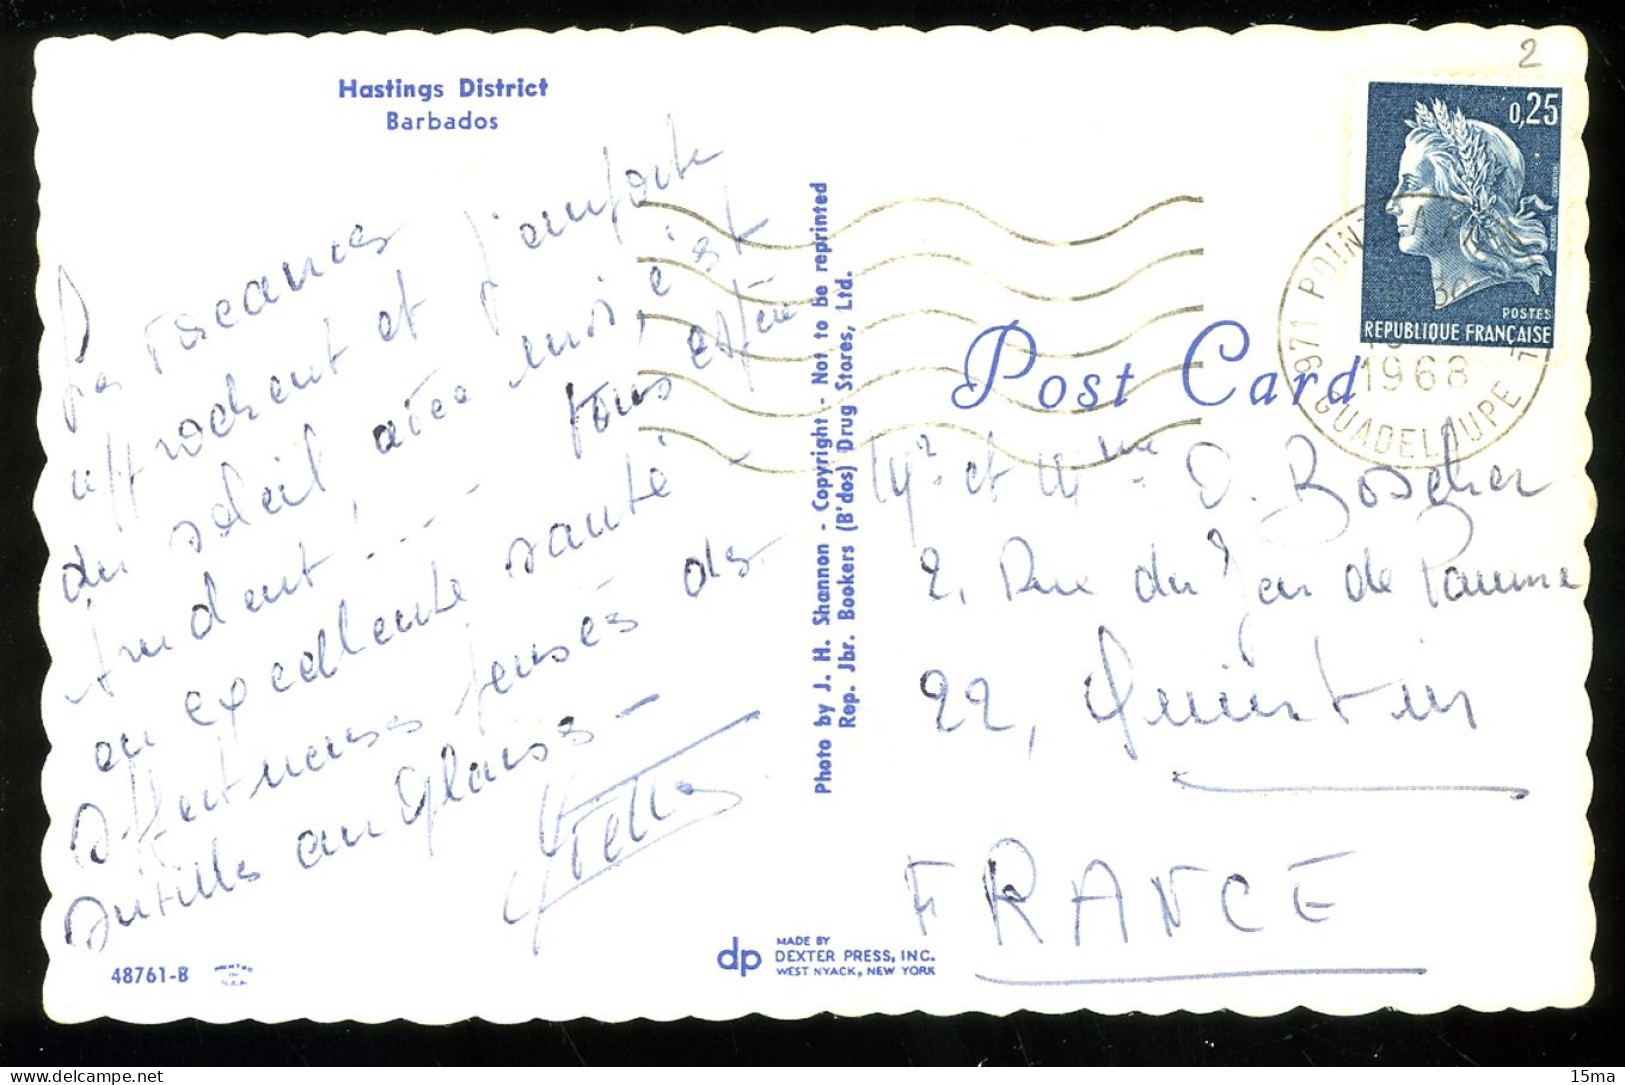 Hastings District
Barbados
Les vacances
approchent et j'emporte
du soleil avec moi, c'est
tous
en excellente santé -
Affectueuses pensées des
Antilles anglaises -
48761-B
dp
MADE BY
DEXTER PRESS, INC.
WEST NYACK, NEW YORK
Photo by J. H. Shannon - Copyright - Not to be reprinted
Rep. Jbr. Bookers (B'dos) Drug Stores, Ltd.
2
0,25
POSTES
REPUBLIQUE FRANÇAISE
1968
971 GUADELOUPE
Post Card
Mr et Mme O. Boscher
2, Rue du Jeu de Paume
22, Quintin
FRANCE
15ma